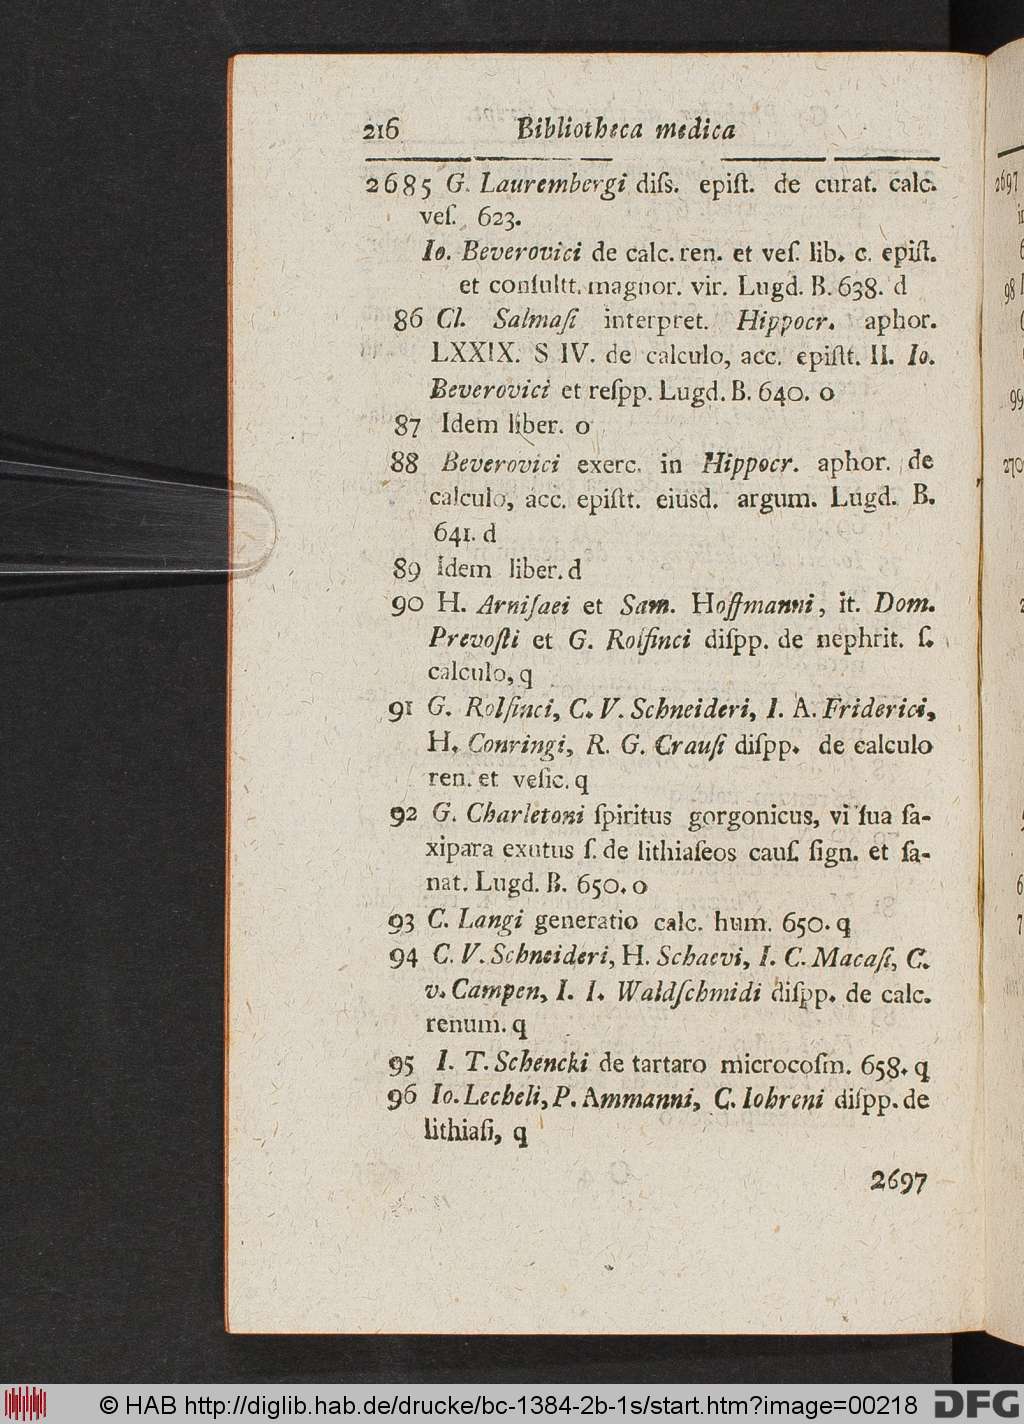 216 Bibliotheca medica
2685 G. Laurembergi diſs. epiſt. de curat. calc.
veſ. 623.
Io. Beverovici de calc. ren. et veſ. lib. c. epiſt.
et conſultt. magnor. vir. Lugd. B. 638. d
86 Cl. Salmaſi interpret. Hippocr. aphor.
LXXIX. S IV. de calculo, acc. epiſtt. II. Io.
Beverovici et reſpp. Lugd. B. 640. o
87 Idem liber. o
88 Beverovici exerc. in Hippocr. aphor. de
calculo, acc. epiſtt. eiusd. argum. Lugd. B.
641. d
89 Idem liber. d
90 H. Arniſaei et Sam. Hoffmanni, it. Dom.
Prevoſti et G. Rolfinci diſpp. de nephrit. ſ.
calculo, q
91 G. Rolfinci, C. V. Schneideri, I. A. Friderici,
H. Conringi, R. G. Crauſi diſpp. de calculo
ren. et veſic. q
92 G. Charletoni ſpiritus gorgonicus, vi ſua ſa-
xipara exutus ſ. de lithiaſeos cauſ. ſign. et ſa-
nat. Lugd. B. 650. o
93 C. Langi generatio calc. hum. 650. q
94 C. V. Schneideri, H. Schaevi, I. C. Macaſi, C.
v. Campen, I. I. Waldſchmidi diſpp. de calc.
renum. q
95 I. T. Schencki de tartaro microcoſm. 658. q
96 Io. Lecheli, P. Ammanni, C. Iohreni diſpp. de
lithiaſi, q
2697
2697
98
99
270
© HAB http://diglib.hab.de/drucke/bc-1384-2b-1s/start.htm?image=00218
DFG